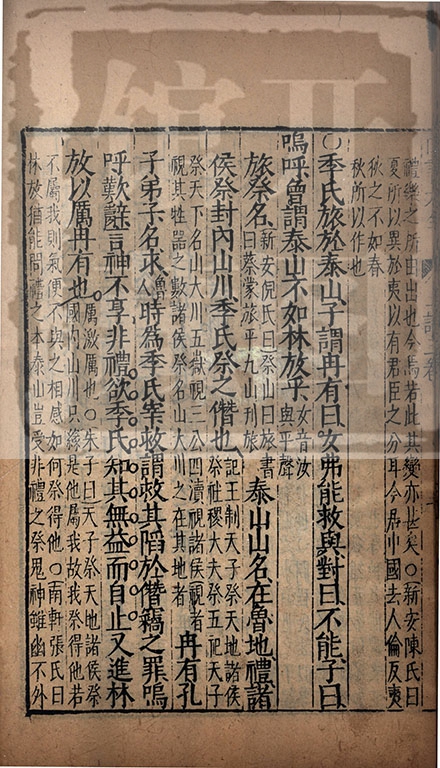 禮樂之所由出也今焉若此其變亦甚矣○新安陳氏曰
夏所以異於夷以有君臣之分耳今居中國去人倫反夷
狄之不如春
秋所以作也
○季氏旅於泰山子謂冉有曰女弗能救與對曰不能子曰
嗚呼曾謂泰山不如林放乎女音汝與平聲
旅祭名新安倪氏曰祭山曰旅書曰蔡蒙旅平九山刊旅泰山山名在魯地禮諸
侯祭封內山川季氏祭之僭也記王制天子祭天地諸侯祭社稷大夫祭五祀天子
祭天下名山大川五嶽視三公四瀆視諸侯視者視其牲器之數諸侯祭名山大川之在其地者冉有孔
子弟子名求魯人時為季氏宰救謂救其陷於僭竊之罪嗚
呼歎辭言神不享非禮欲季氏知其無益而自止又進林
放以厲冉有也厲激厲也○朱子曰天子祭天地諸侯祭國內山川只緣是他屬我故我祭得他若
不屬我則氣便不與之相感如何祭得他○南軒張氏曰
林放猶能問禮之本泰山豈受非禮之祭鬼神雖幽不外